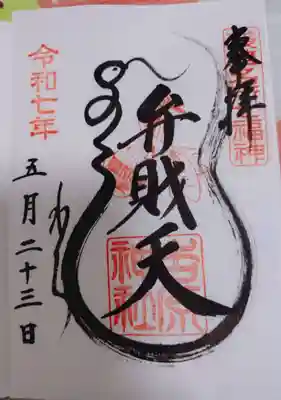 奉拝
福神
弁財天
吉原神社
令和七年
五月二十三日